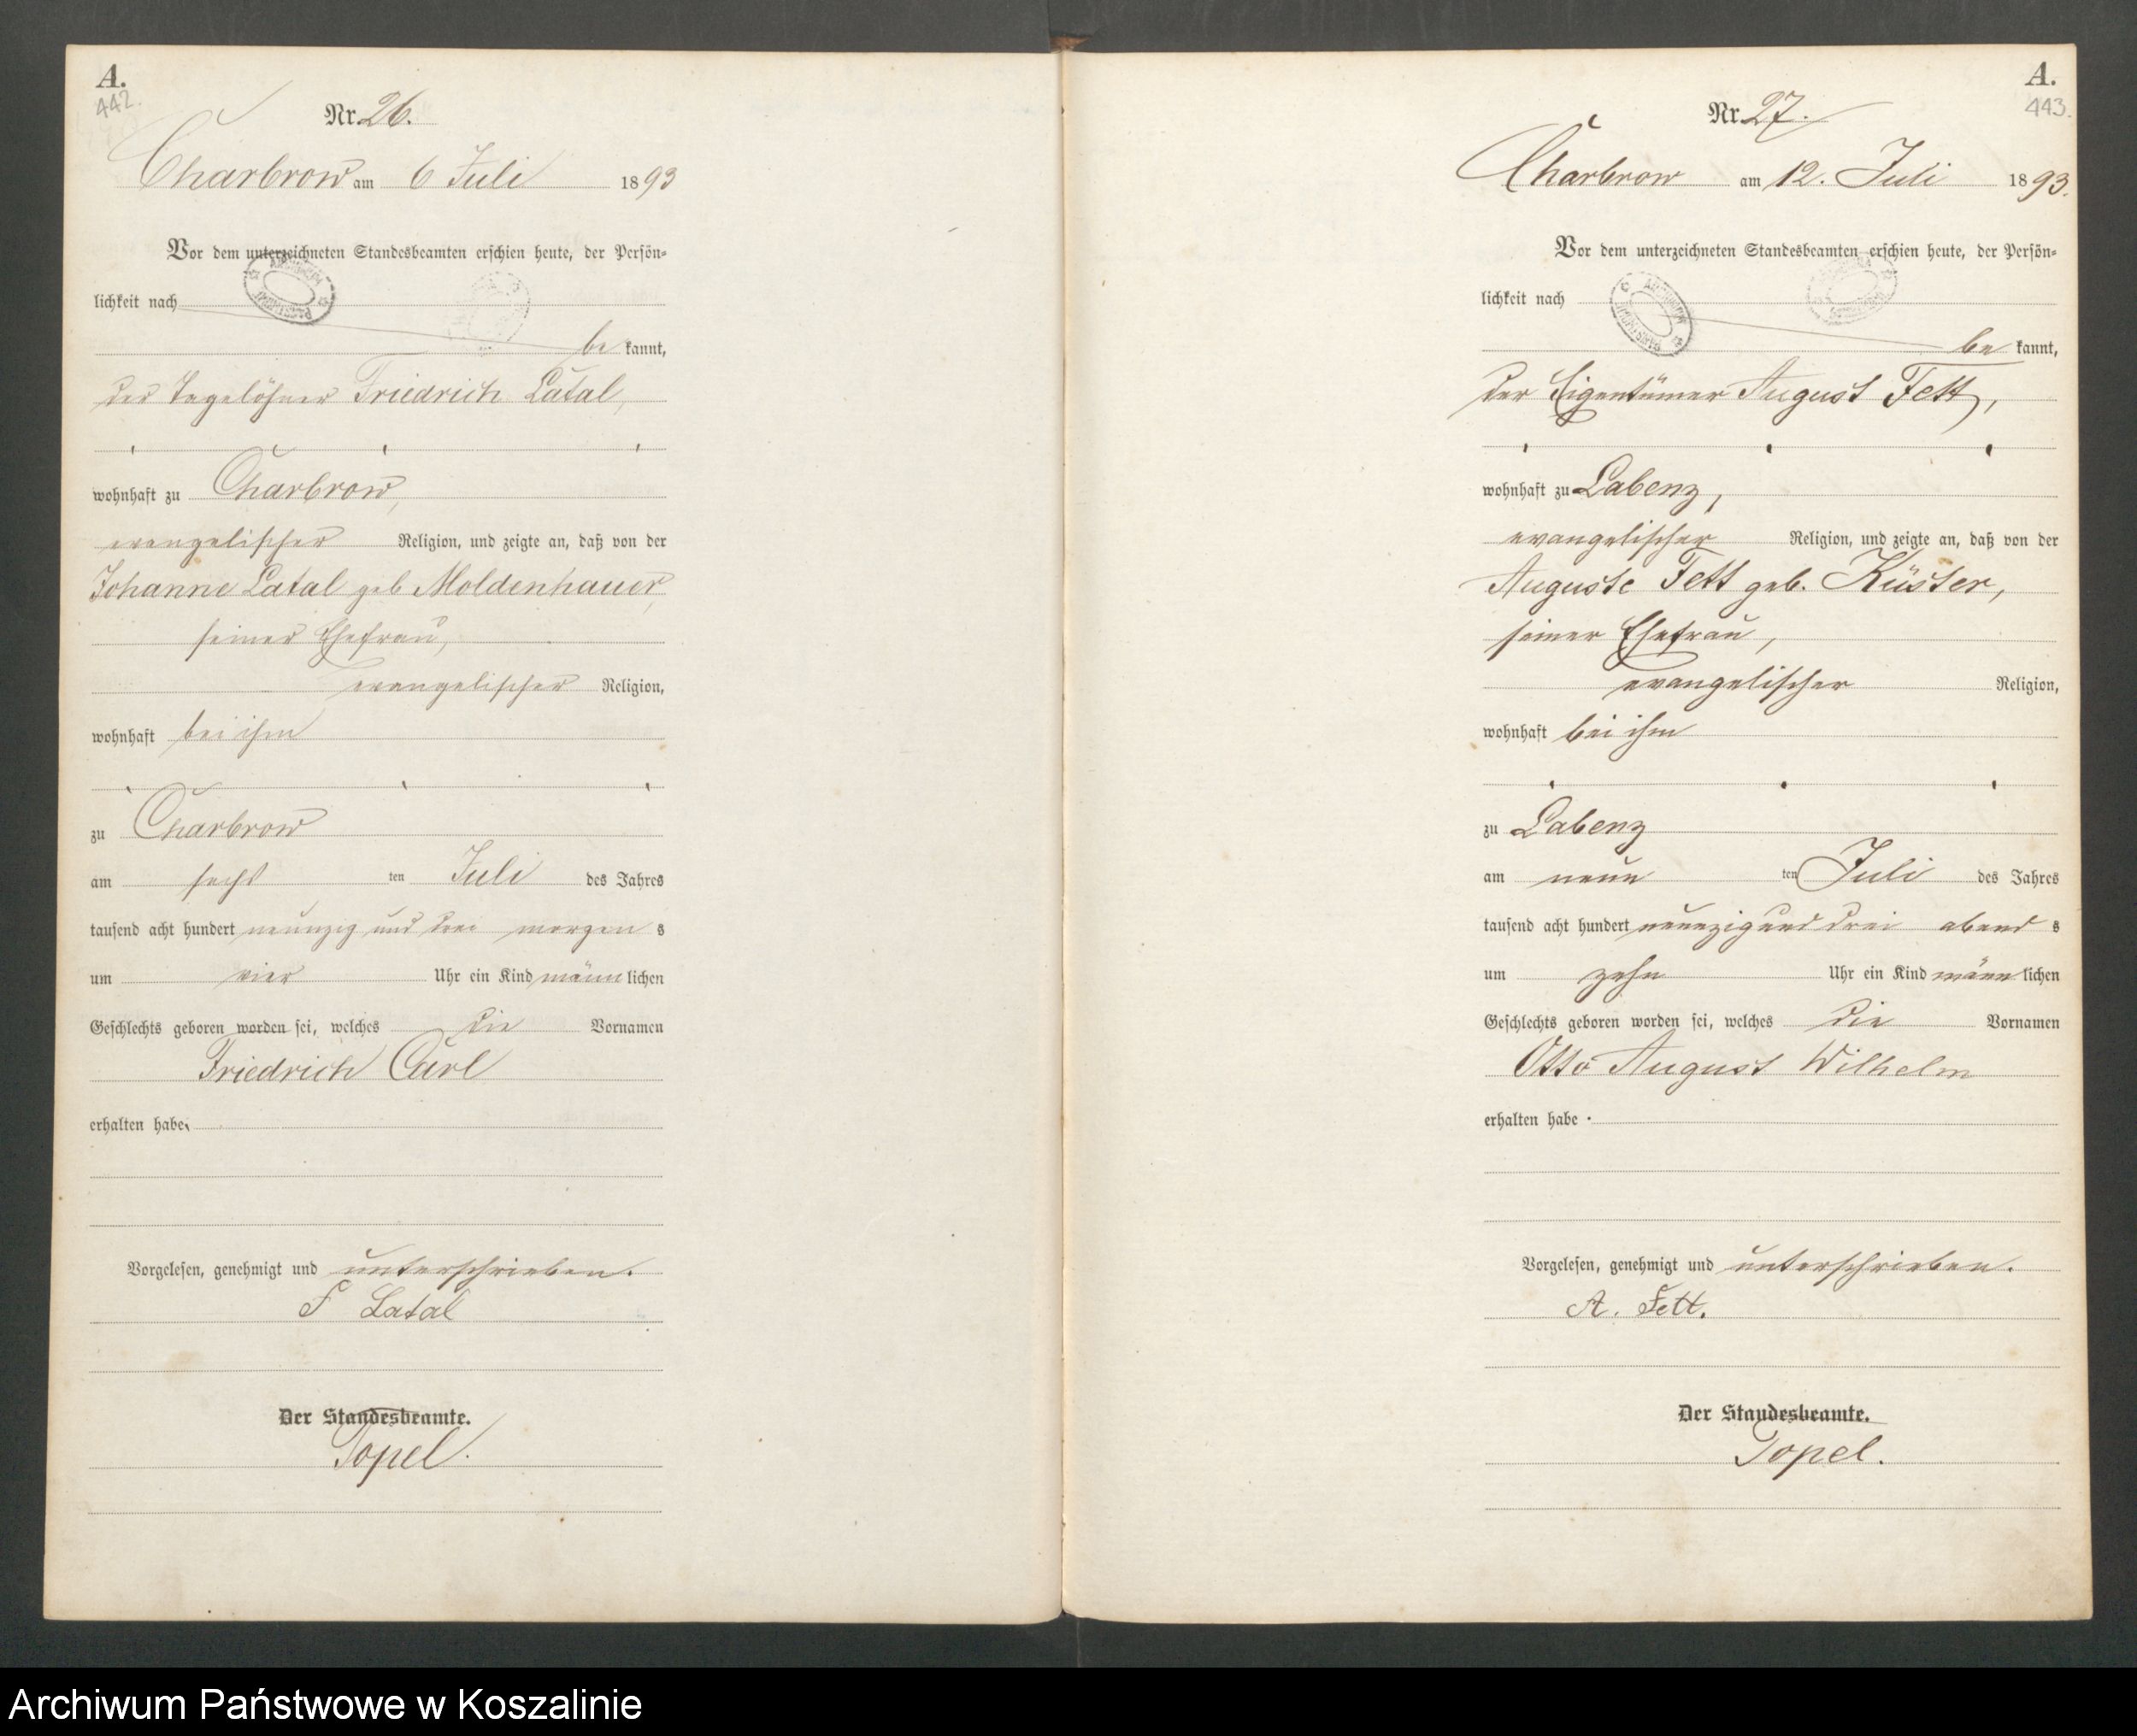 A.
442.
Nr. 26.
Charbrow am 6 Juli 1893
Vor dem unterzeichneten Standesbeamten erschien heute, der Persön-
lichkeit nach
be kannt,
der Tagelöhner Friedrich Latal,
wohnhaft zu Charbrow,
evangelischer Religion, und zeigte an, daß von der
Johanne Latal geb Moldenhauer,
seiner Ehefrau,
evangelischer Religion,
wohnhaft bei ihm
zu Charbrow
am sechs ten Juli des Jahres
tausend acht hundert neunzig und drei morgen s
um vier Uhr ein Kind männ lichen
Geschlechts geboren worden sei, welches die Vornamen
Friedrich Carl
erhalten habe.
Vorgelesen, genehmigt und unterschrieben.
F Latal
Der Standesbeamte.
Topel.
A.
443.
Nr. 27.
Charbrow am 12. Juli 1893.
Vor dem unterzeichneten Standesbeamten erschien heute, der Persön-
lichkeit nach
be kannt,
der Eigentümer August Fett,
wohnhaft zu Labenz,
evangelischer Religion, und zeigte an, daß von der
Auguste Fett geb. Küster,
seiner Ehefrau,
evangelischer Religion,
wohnhaft bei ihm
zu Labenz
am neun ten Juli des Jahres
tausend acht hundert neunzig und drei abend s
um zehn Uhr ein Kind männ lichen
Geschlechts geboren worden sei, welches die Vornamen
Otto August Wilhelm
erhalten habe.
Vorgelesen, genehmigt und unterschrieben.
A. Fett.
Der Standesbeamte.
Topel.
Archiwum Państwowe w Koszalinie